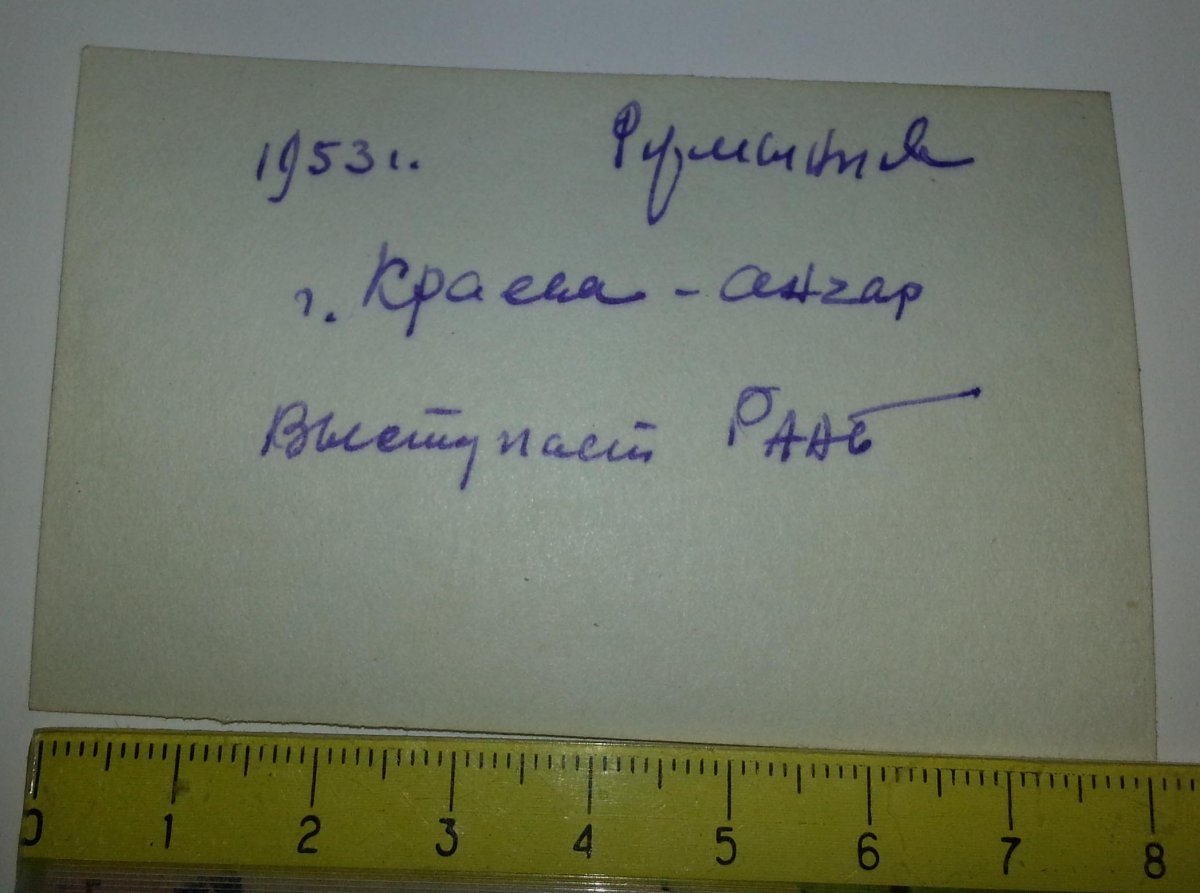 1953 г. Румыния
г. Краева - ангар
Выступает РААБ
0 1 2 3 4 5 6 7 8